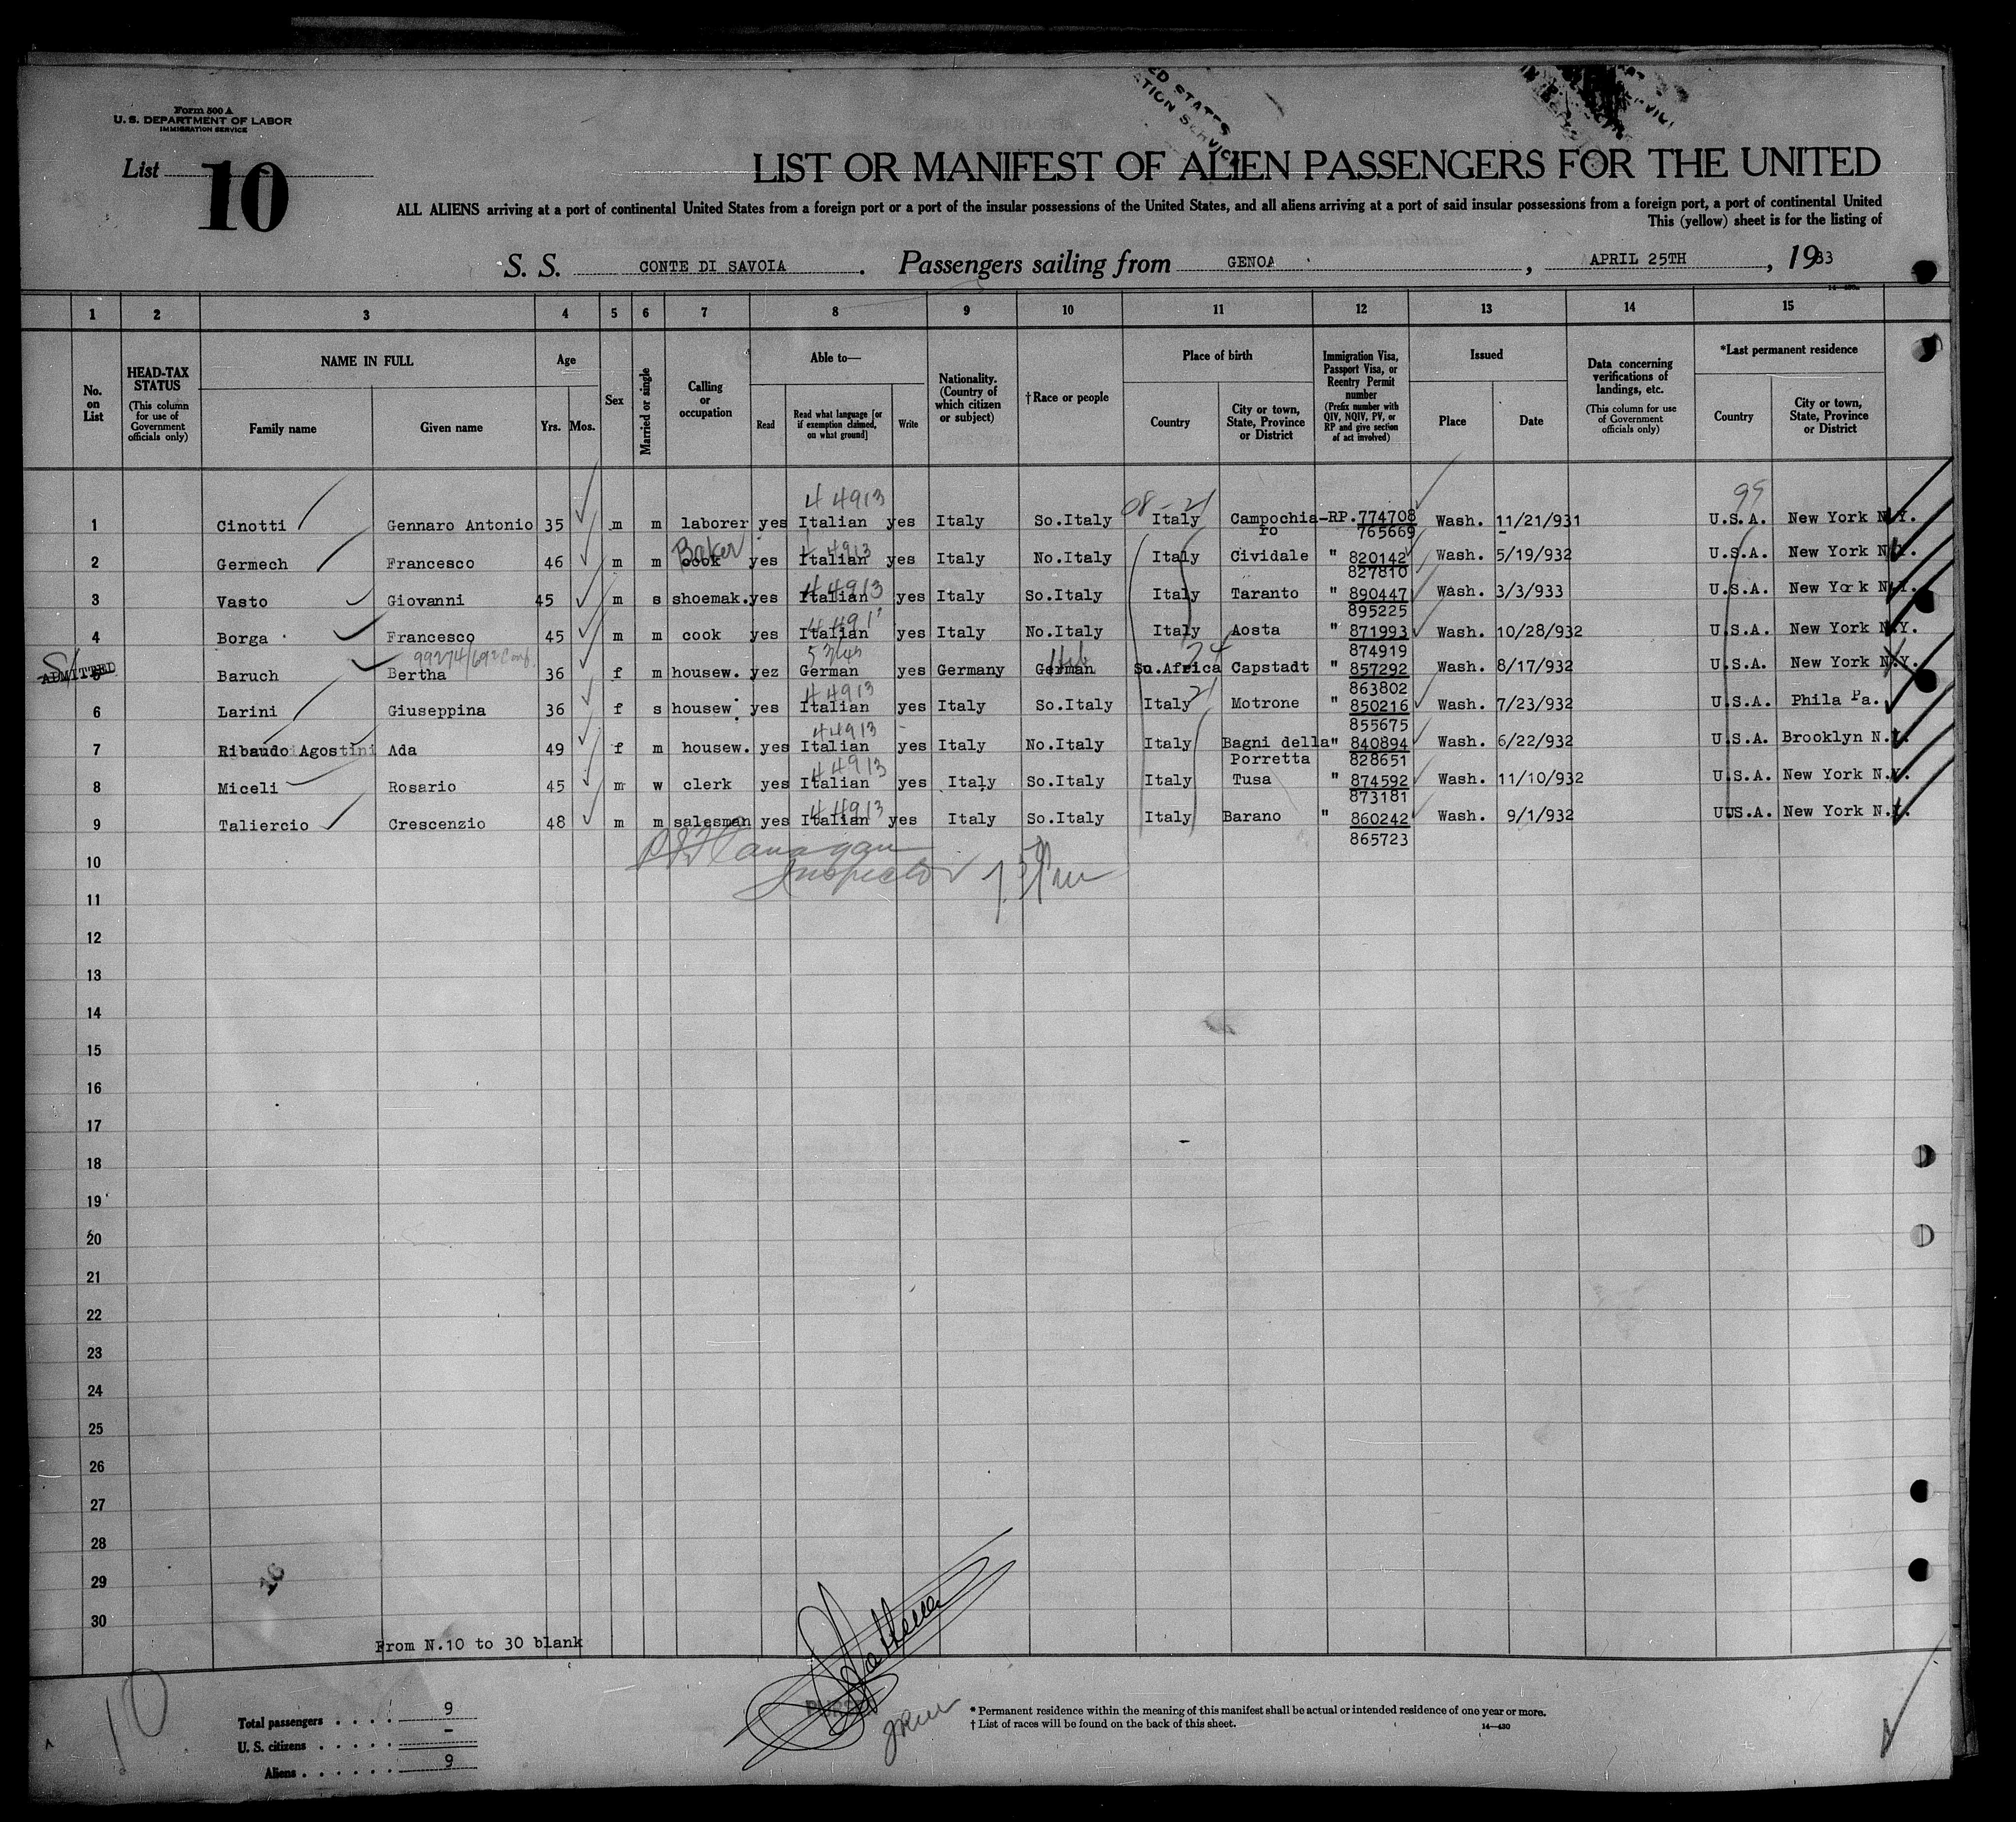 ED STATES
ATION SERVICE
Form 500 A
U. S. DEPARTMENT OF LABOR
IMMIGRATION SERVICE
List 10
LIST OR MANIFEST OF ALIEN PASSENGERS FOR THE UNITED
ALL ALIENS arriving at a port of continental United States from a foreign port or a port of the insular possessions of the United States, and all aliens arriving at a port of said insular possessions from a foreign port, a port of continental United
This (yellow) sheet is for the listing of
S. S. CONTE DI SAVOIA . Passengers sailing from GENOA , APRIL 25TH , 1933
1 2 3 4 5 6 7 8 9 10 11 12 13 14 15
No. on List
HEAD-TAX STATUS (This column for use of Government officials only)
NAME IN FULL Family name Given name
Age Yrs. Mos.
Sex
Married or single
Calling or occupation
Able to— Read Read what language [or if exemption claimed, on what ground] Write
Nationality. (Country of which citizen or subject)
†Race or people
Place of birth Country City or town, State, Province or District
Immigration Visa, Passport Visa, or Reentry Permit number (Prefix number with QIV, NQIV, PV, or RP and give section of act involved)
Issued Place Date
Data concerning verifications of landings, etc. (This column for use of Government officials only)
*Last permanent residence Country City or town, State, Province or District
44913 08-21 99
1 Cinotti Gennaro Antonio 35 m m laborer yes Italian yes Italy So.Italy Italy Campochia-ro RP.774708 765669 Wash. 11/21/931 U.S.A. New York N.Y.
Baker 44913
2 Germech Francesco 46 m m cook yes Italian yes Italy No.Italy Italy Cividale " 820142 827810 Wash. 5/19/932 U.S.A. New York N.Y.
44913
3 Vasto Giovanni 45 m s shoemak. yes Italian yes Italy So.Italy Italy Taranto " 890447 895225 Wash. 3/3/933 U.S.A. New York N.Y.
4 Borga Francesco 45 m m cook yes Italian yes Italy No.Italy Italy Aosta " 871993 874919 Wash. 10/28/932 U.S.A. New York N.Y.
99274/692 Heb
ADMITTED 5 Baruch Bertha 36 f m housew. yez German yes Germany German So.Africa Capstadt " 857292 863802 Wash. 8/17/932 U.S.A. New York N.Y.
44913 21
6 Larini Giuseppina 36 f s housew. yes Italian yes Italy So.Italy Italy Motrone " 850216 855675 Wash. 7/23/932 U.S.A. Phila Pa.
44913
7 Ribaudo Agostini Ada 49 f m housew. yes Italian yes Italy No.Italy Italy Bagni della Porretta " 840894 828651 Wash. 6/22/932 U.S.A. Brooklyn N.Y.
44913
8 Miceli Rosario 45 m w clerk yes Italian yes Italy So.Italy Italy Tusa " 874592 873181 Wash. 11/10/932 U.S.A. New York N.Y.
44913
9 Taliercio Crescenzio 48 m m salesman yes Italian yes Italy So.Italy Italy Barano " 860242 865723 Wash. 9/1/932 UUS.A. New York N.Y.
10
Inspector
11
12
13
14
15
16
17
18
19
20
21
22
23
24
25
26
27
28
29
30
From N.10 to 30 blank
10
Total passengers . . . . 9
U. S. citizens . . . . . –
Aliens . . . . . . 9
* Permanent residence within the meaning of this manifest shall be actual or intended residence of one year or more.
† List of races will be found on the back of this sheet.
14—430